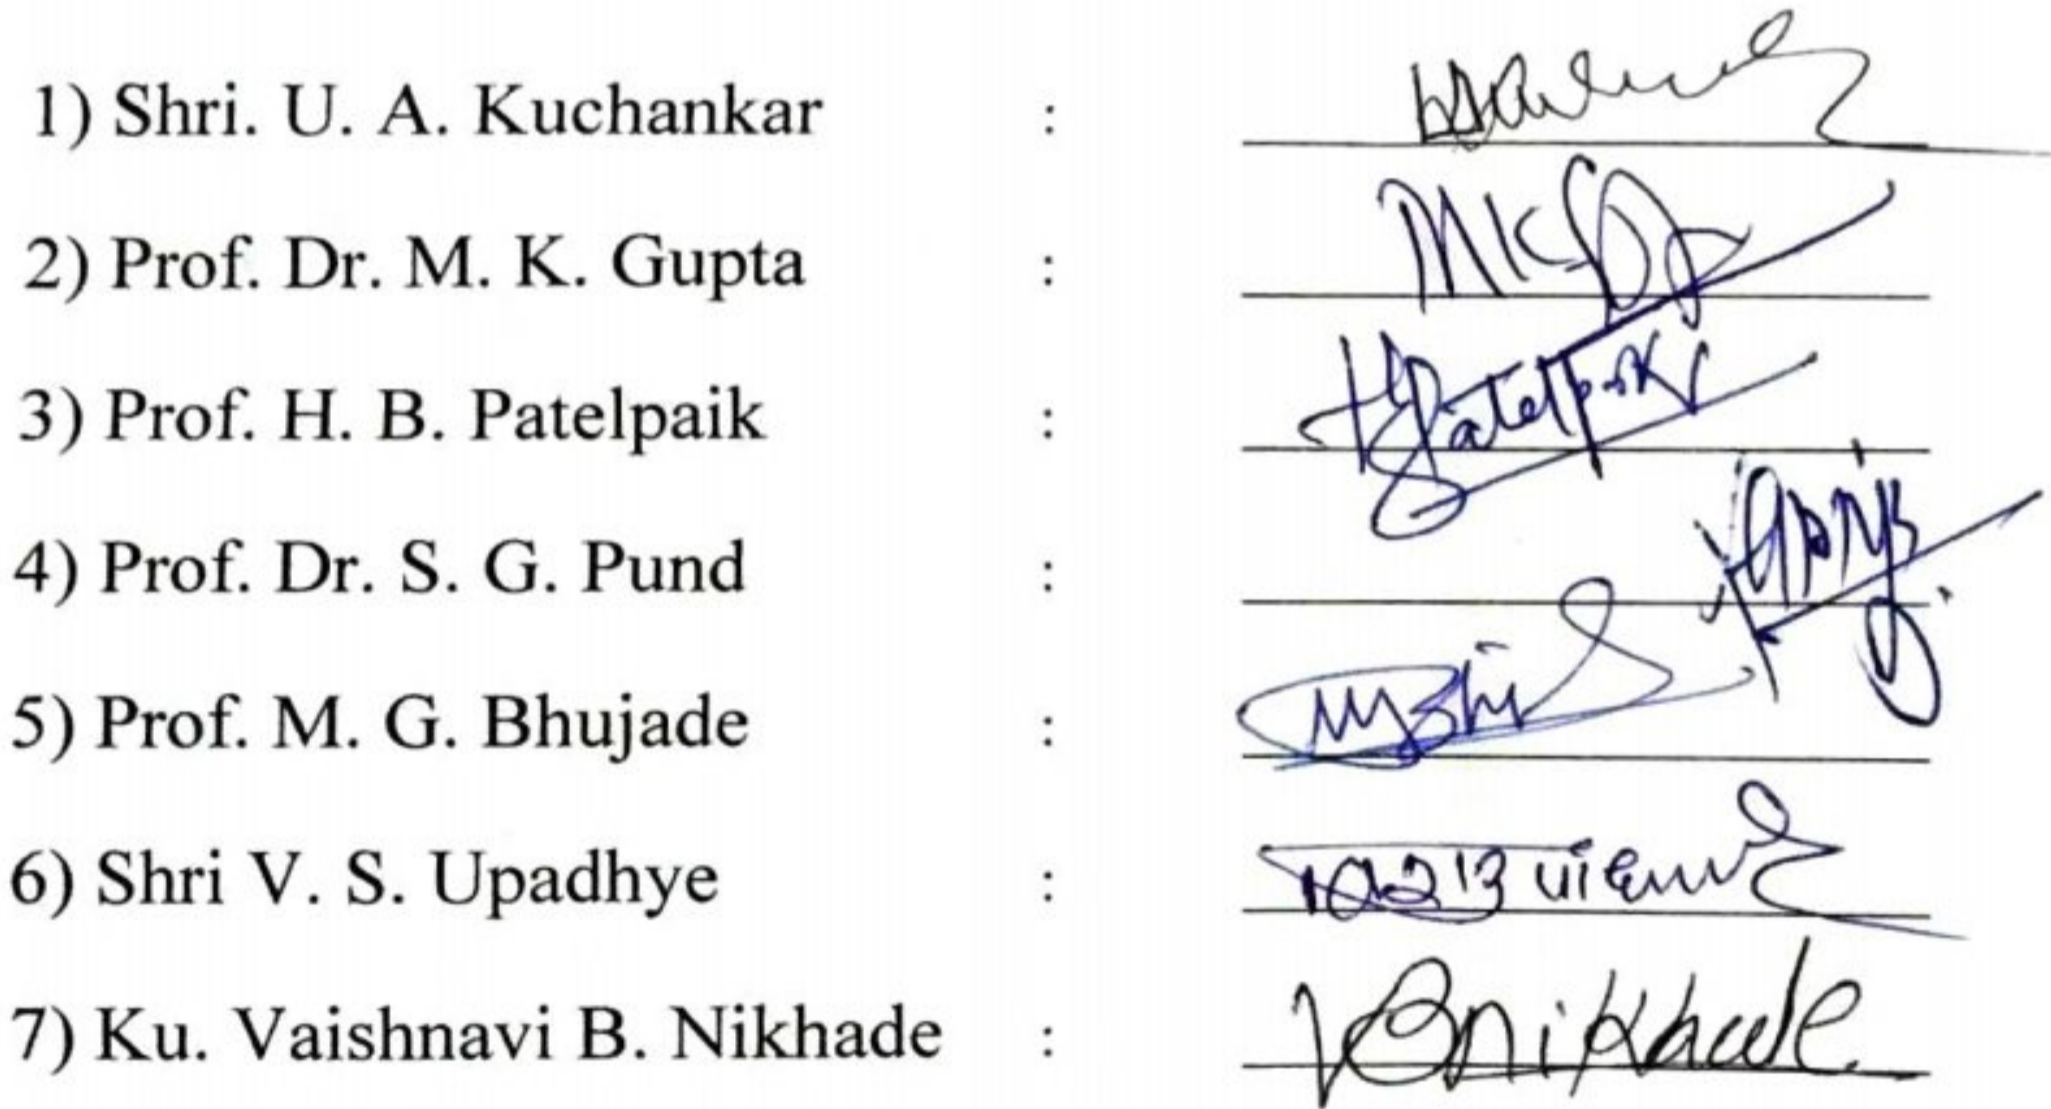 1) Shri. U. A. Kuchankar :
2) Prof. Dr. M. K. Gupta :
3) Prof. H. B. Patelpaik : HBPatelpaik
4) Prof. Dr. S. G. Pund :
5) Prof. M. G. Bhujade :
6) Shri V. S. Upadhye :
7) Ku. Vaishnavi B. Nikhade : VBNikhade